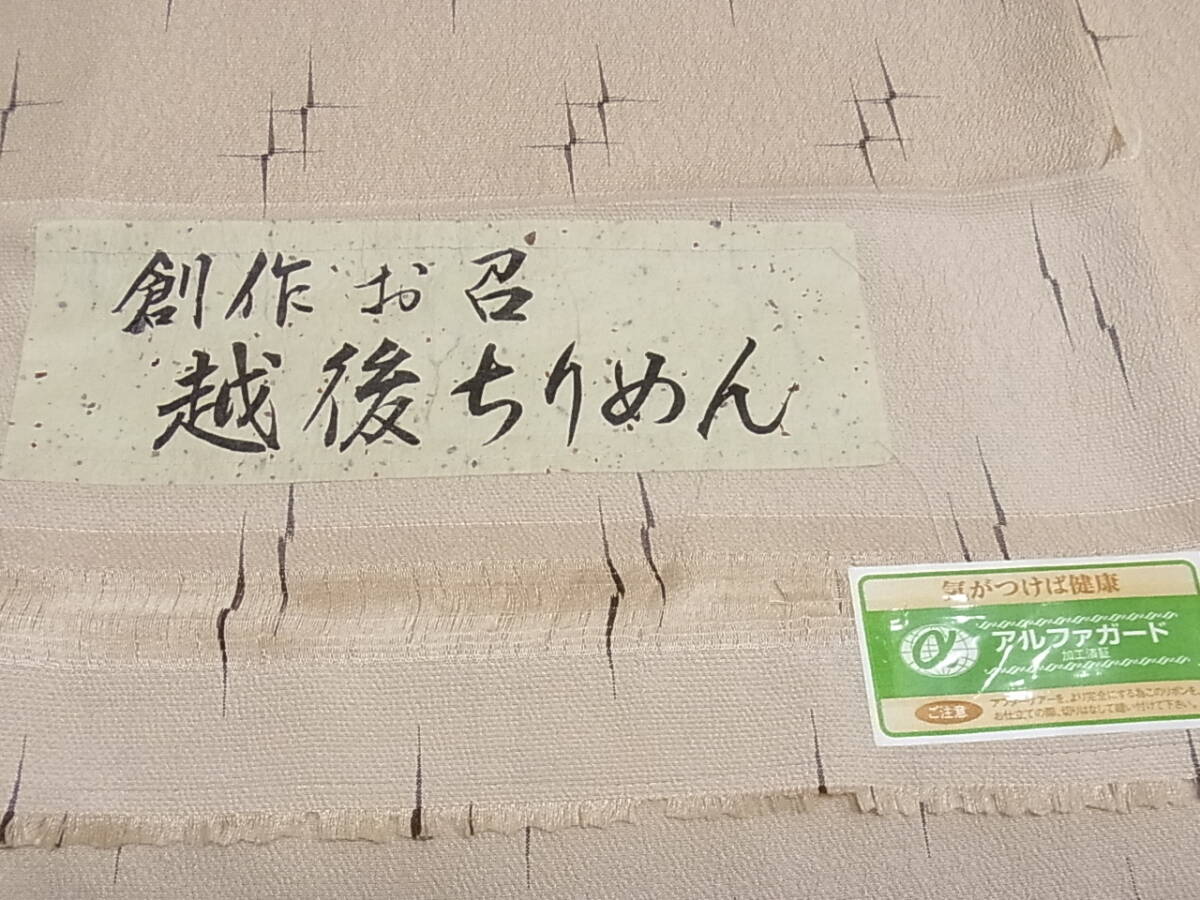 創作お召
越後ちりめん
気がつけば健康
アルファガード
加工済証
ご注意
アフターケアーを、より完全にする為このリボンを、
お仕立ての際、切りはなして縫い付けて下さい。